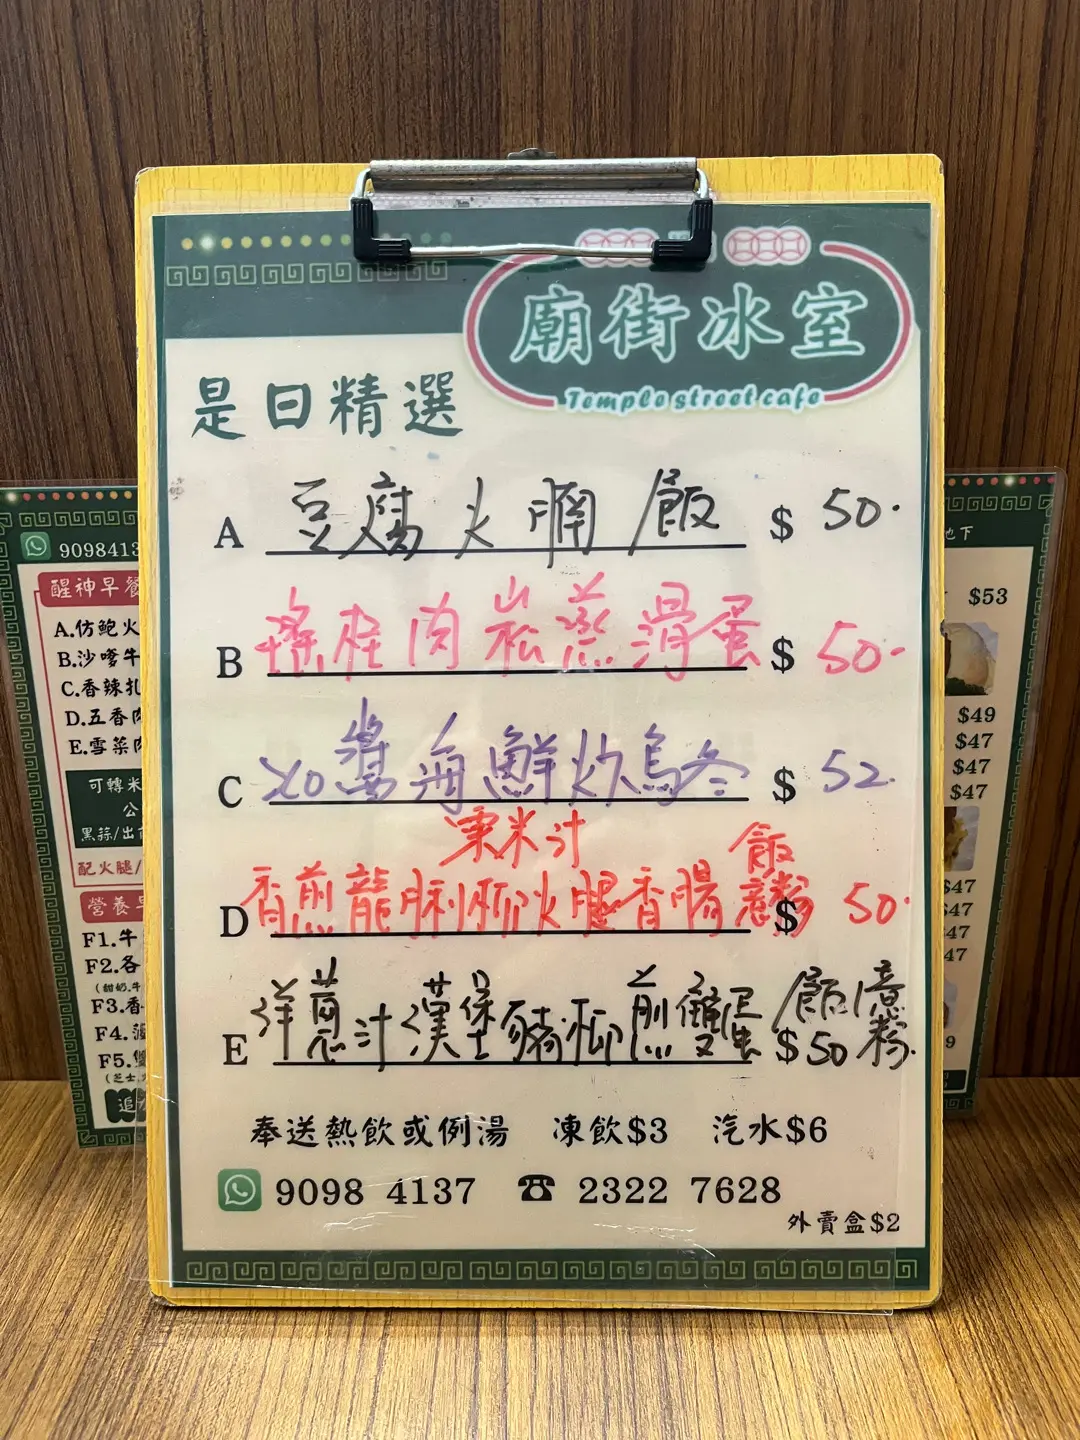 廟街冰室
Temple street cafe
是日精選
A 豆腐火腩飯 $ 50.
B 瑤柱肉崧蒸滑蛋 $ 50.
C XO醬海鮮炒烏冬 $ 52.
粟米汁 飯
D 香煎龍脷柳火腿香腸意粉 $ 50.
E 洋葱汁漢堡豬柳煎雙蛋 飯意粉 $50
奉送熱飲或例湯 凍飲$3 汽水$6
9098 4137 ☎ 2322 7628
外賣盒$2
9098413
醒神早餐
A.仿鮑火
B.沙嗲牛
C.香辣扎
D.五香肉
E.雪菜肉
可轉米
公
黑蒜/出
配火腿/
營養早
F1.牛
F2.各
(甜奶.牛
F3.香
F4.
F5.雙
(芝士.
追
地下
$53
$49
$47
$47
$47
$47
$47
47
47
9